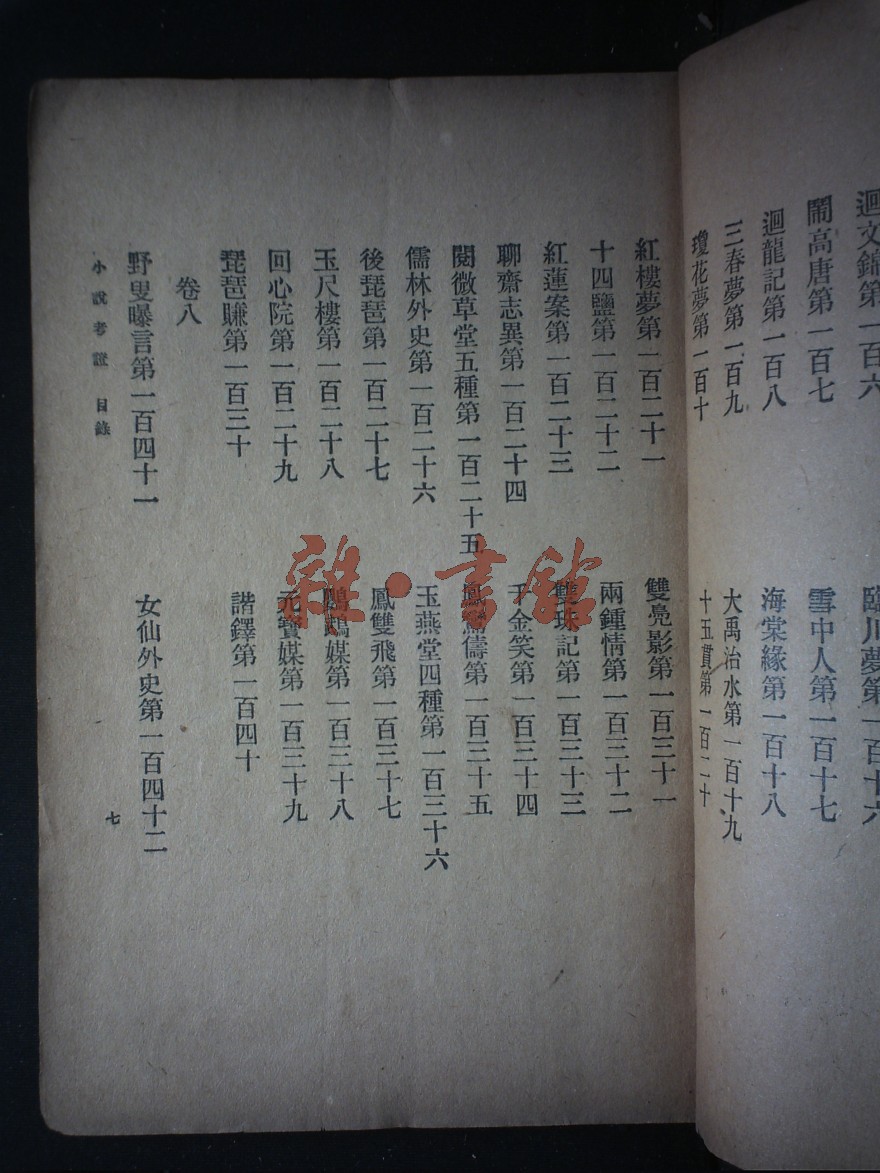 迴文錦第一百六
鬧高唐第一百七
迴龍記第一百八
三春夢第一百九
瓊花夢第一百十
臨川夢第一百十六
雪中人第一百十七
海棠緣第一百十八
大禹治水第一百十九
十五貫第一百二十
紅樓夢第一百二十一
十四鹽第一百二十二
紅蓮案第一百二十三
聊齋志異第一百二十四
閱微草堂五種第一百二十五
儒林外史第一百二十六
後琵琶第一百二十七
玉尺樓第一百二十八
回心院第一百二十九
琵琶賺第一百三十
雙亮影第一百三十一
兩鍾情第一百三十二
雙珠記第一百三十三
千金笑第一百三十四
鳳鸞儔第一百三十五
玉燕堂四種第一百三十六
鳳雙飛第一百三十七
鸚鵡媒第一百三十八
元寶媒第一百三十九
諧鐸第一百四十
卷八
野叟曝言第一百四十一
女仙外史第一百四十二
小說考證 目錄
七
雜·書館